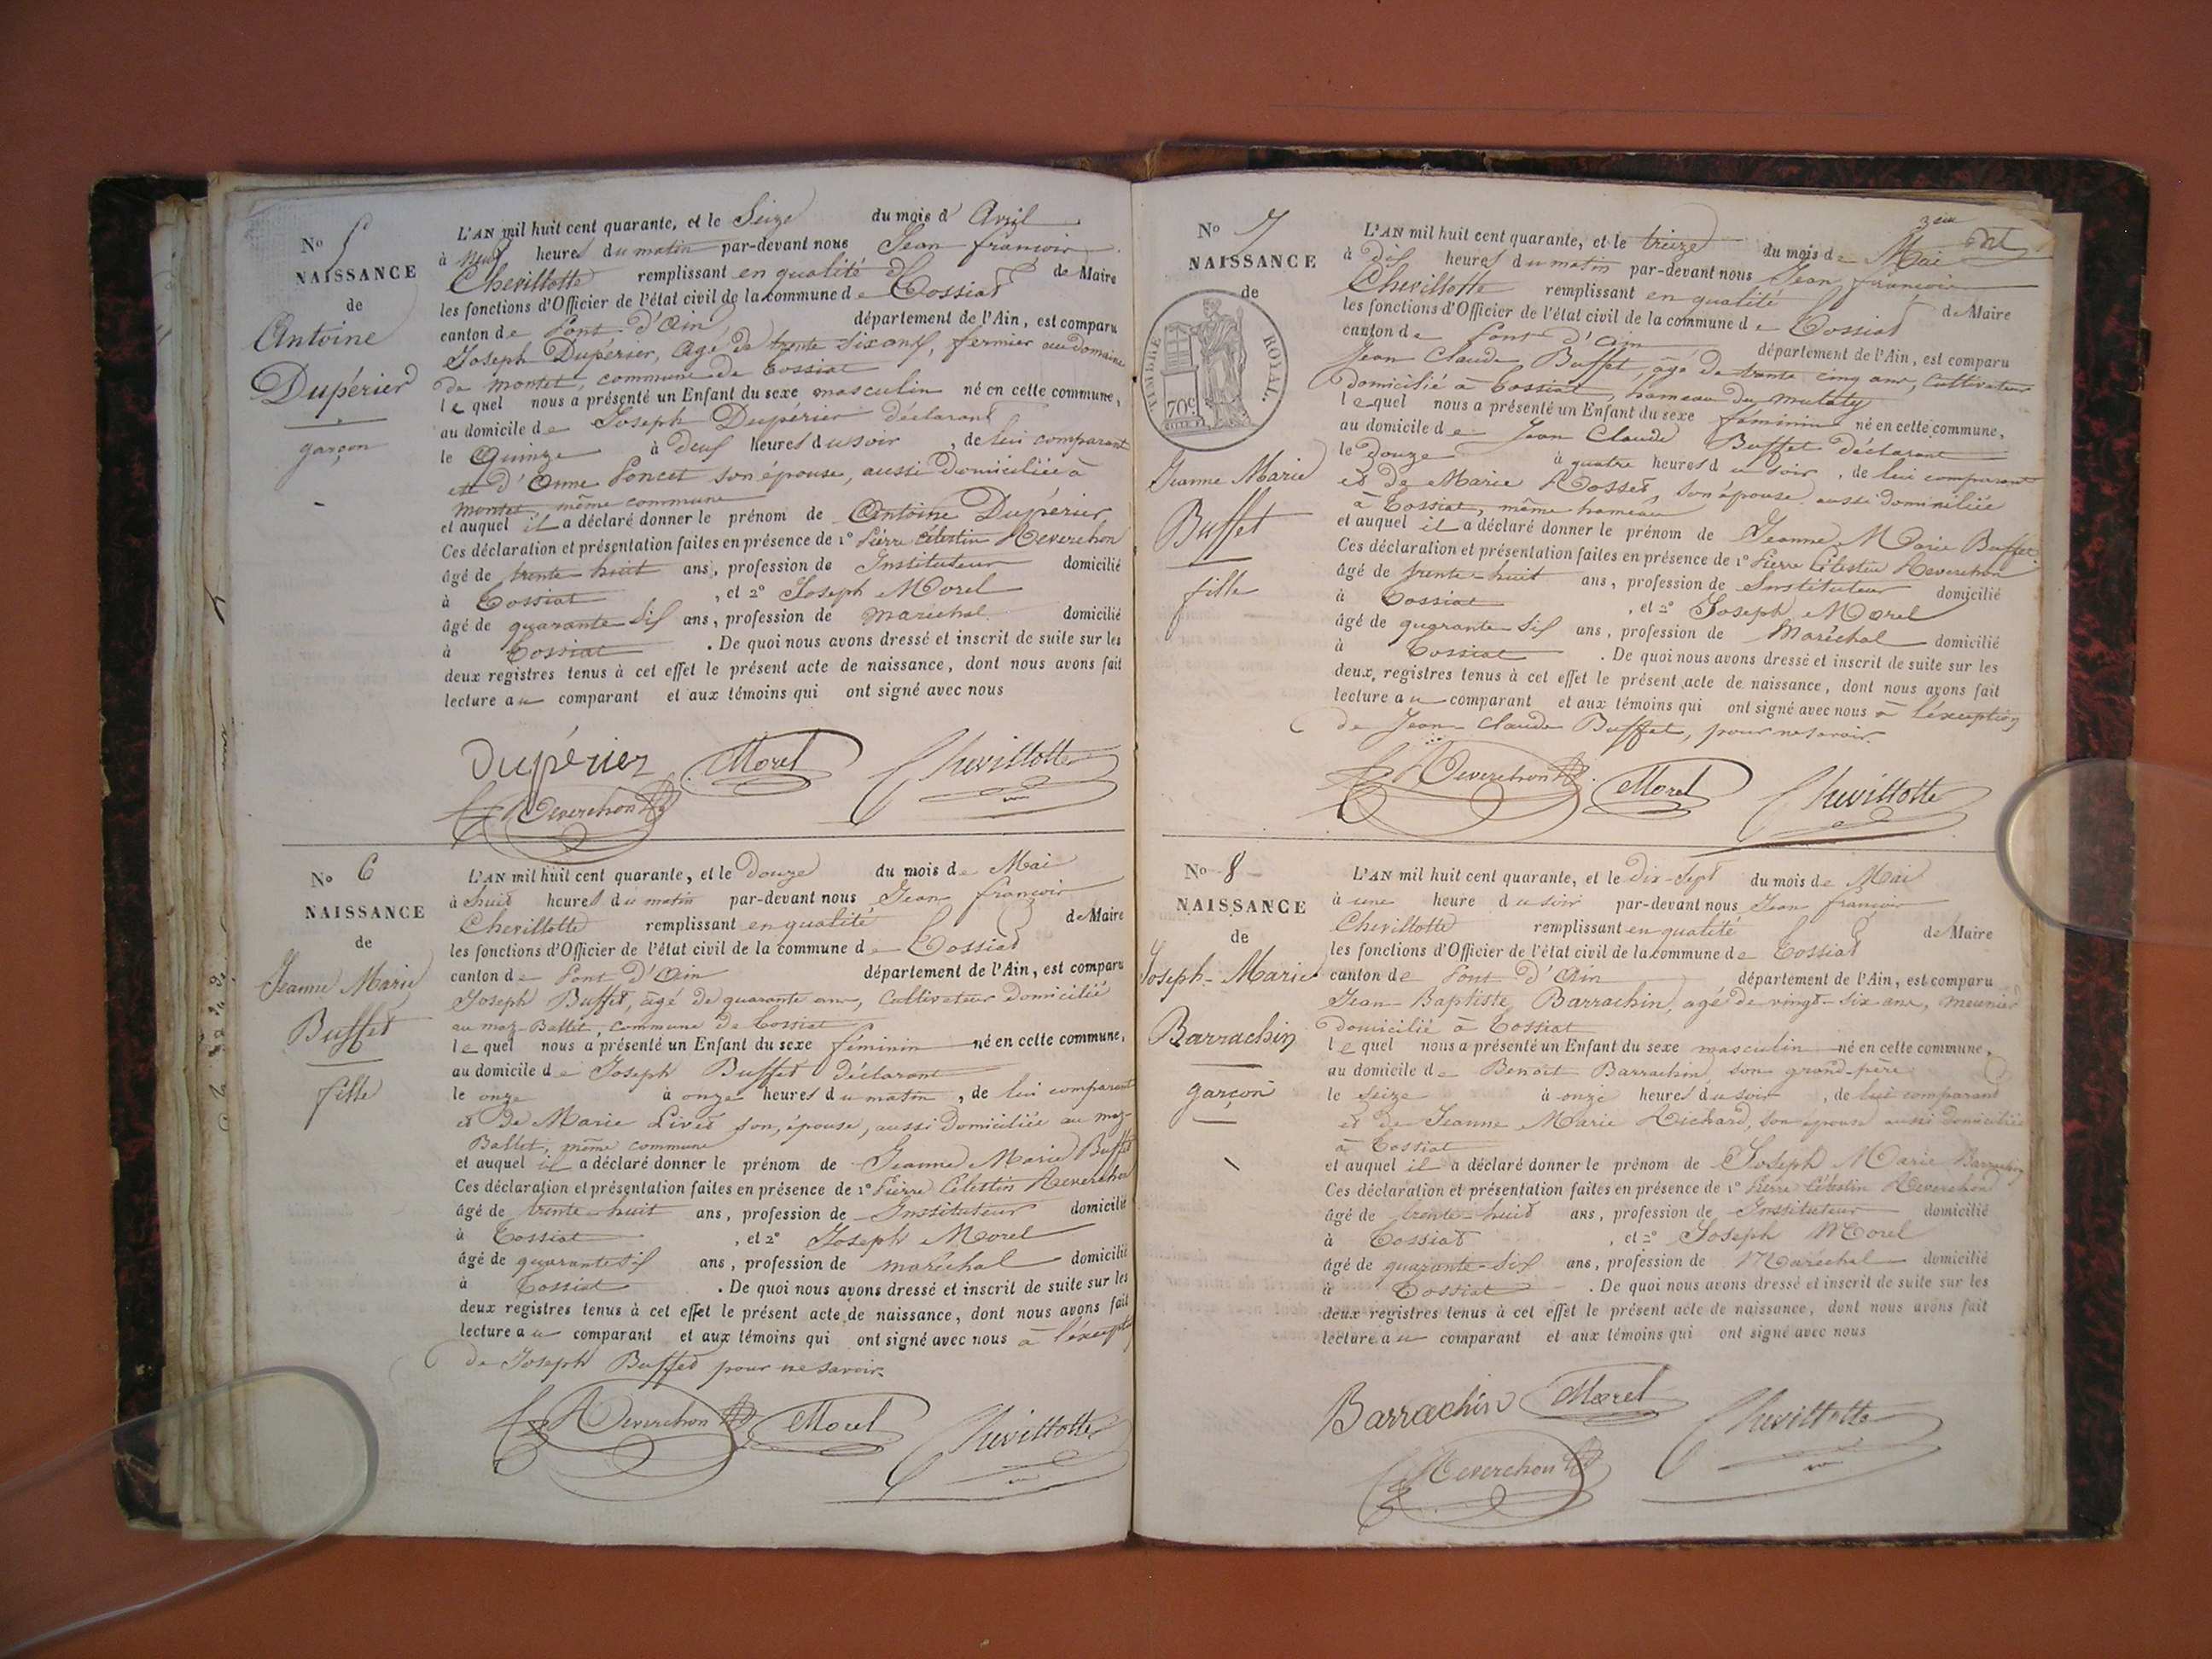 No 5
NAISSANCE
de
Antoine
Dupérier
garçon
L'AN mil huit cent quarante, et le Seize du mois d' Avril
à neuf heures du matin par-devant nous Jean françois
Chevillotte remplissant en qualité de Maire
les fonctions d'Officier de l'état civil de la commune de Tossiat
canton de Pont d'Ain département de l'Ain, est comparu
Joseph Dupérier, âgé de trente six ans, fermier au domaine
de montet, commune de Tossiat
lequel nous a présenté un Enfant du sexe masculin né en cette commune,
au domicile de Joseph Dupérier déclarant
le Quinze à deux heures du soir, de lui comparant
et d'Anne Poncet son épouse, aussi domiciliée à
montet, même commune
et auquel il a déclaré donner le prénom de Antoine Dupérier
Ces déclaration et présentation faites en présence de 1° Pierre Célestin Reverchon
âgé de trente huit ans, profession de Instituteur domicilié
à Tossiat, et 2° Joseph Morel
âgé de quarante six ans, profession de maréchal domicilié
à Tossiat. De quoi nous avons dressé et inscrit de suite sur les
deux registres tenus à cet effet le présent acte de naissance, dont nous avons fait
lecture au comparant et aux témoins qui ont signé avec nous
Dupérier Morel Chevillotte
Reverchon
No 6
NAISSANCE
de
Jeanne Marie
Buffet
fille
L'AN mil huit cent quarante, et le douze du mois de Mai
à huit heures du matin par-devant nous Jean françois
Chevillotte remplissant en qualité de Maire
les fonctions d'Officier de l'état civil de la commune de Tossiat
canton de Pont d'Ain département de l'Ain, est comparu
Joseph Buffet, âgé de quarante ans, Cultivateur domicilié
au maz-Ballet, commune de Tossiat
lequel nous a présenté un Enfant du sexe féminin né en cette commune,
au domicile de Joseph Buffet déclarant
le onze à onze heures du matin, de lui comparant
et de Marie Livet son épouse, aussi domiciliée au maz-
Ballet, même commune
et auquel il a déclaré donner le prénom de Jeanne Marie Buffet
Ces déclaration et présentation faites en présence de 1° Pierre Célestin Reverchon
âgé de trente-huit ans, profession de Instituteur domicilié
à Tossiat, et 2° Joseph Morel
âgé de quarante six ans, profession de maréchal domicilié
à Tossiat. De quoi nous avons dressé et inscrit de suite sur les
deux registres tenus à cet effet le présent acte de naissance, dont nous avons fait
lecture au comparant et aux témoins qui ont signé avec nous à l'except
de Joseph Buffet pour ne savoir.
Reverchon Morel Chevillotte
3eme
No 7
NAISSANCE
de
TIMBRE ROYAL.
70c
Jeanne Marie
Buffet
fille
L'AN mil huit cent quarante, et le treize du mois de Mai
à dix heures du matin par-devant nous Jean françois
Chevillotte remplissant en qualité de Maire
les fonctions d'Officier de l'état civil de la commune de Tossiat
canton de Pont d'Ain département de l'Ain, est comparu
Jean Claude Buffet, âgé de trente cinq ans, Cultivateur
domicilié à Tossiat, hameau du
lequel nous a présenté un Enfant du sexe féminin né en cette commune,
au domicile de Jean Claude Buffet déclarant
le douze à quatre heures du soir, de lui comparant
et de Marie Rosset, son épouse aussi domiciliée
à Tossiat, même hameau
et auquel il a déclaré donner le prénom de Jeanne Marie Buffet
Ces déclaration et présentation faites en présence de 1° Pierre Célestin Reverchon
âgé de trente-huit ans, profession de Instituteur domicilié
à Tossiat, et 2° Joseph Morel
âgé de quarante six ans, profession de Maréchal domicilié
à Tossiat. De quoi nous avons dressé et inscrit de suite sur les
deux registres tenus à cet effet le présent acte de naissance, dont nous avons fait
lecture au comparant et aux témoins qui ont signé avec nous à l'exception
de Jean Claude Buffet, pour ne savoir.
Reverchon Morel Chevillotte
No 8
NAISSANCE
de
Joseph-Marie
Barrachin
garçon
L'AN mil huit cent quarante, et le dix-sept du mois de Mai
à une heure du soir par-devant nous Jean françois
Chevillotte remplissant en qualité de Maire
les fonctions d'Officier de l'état civil de la commune de Tossiat
canton de Pont d'Ain département de l'Ain, est comparu
Jean-Baptiste Barrachin, agé de vingt-six ans, meunier
domicilié à Tossiat
lequel nous a présenté un Enfant du sexe masculin né en cette commune,
au domicile de Benoît Barrachin, son grand-père
le seize à onze heures du soir, de lui comparant
et de Jeanne Marie Richard, son épouse aussi domiciliée
à Tossiat
et auquel il a déclaré donner le prénom de Joseph Marie Barrachin
Ces déclaration et présentation faites en présence de 1° Pierre Célestin Reverchon
âgé de trente-huit ans, profession de Instituteur domicilié
à Tossiat, et 2° Joseph Morel
âgé de quarante-six ans, profession de Maréchal domicilié
à Tossiat. De quoi nous avons dressé et inscrit de suite sur les
deux registres tenus à cet effet le présent acte de naissance, dont nous avons fait
lecture au comparant et aux témoins qui ont signé avec nous
Barrachin Morel Chevillotte
Reverchon